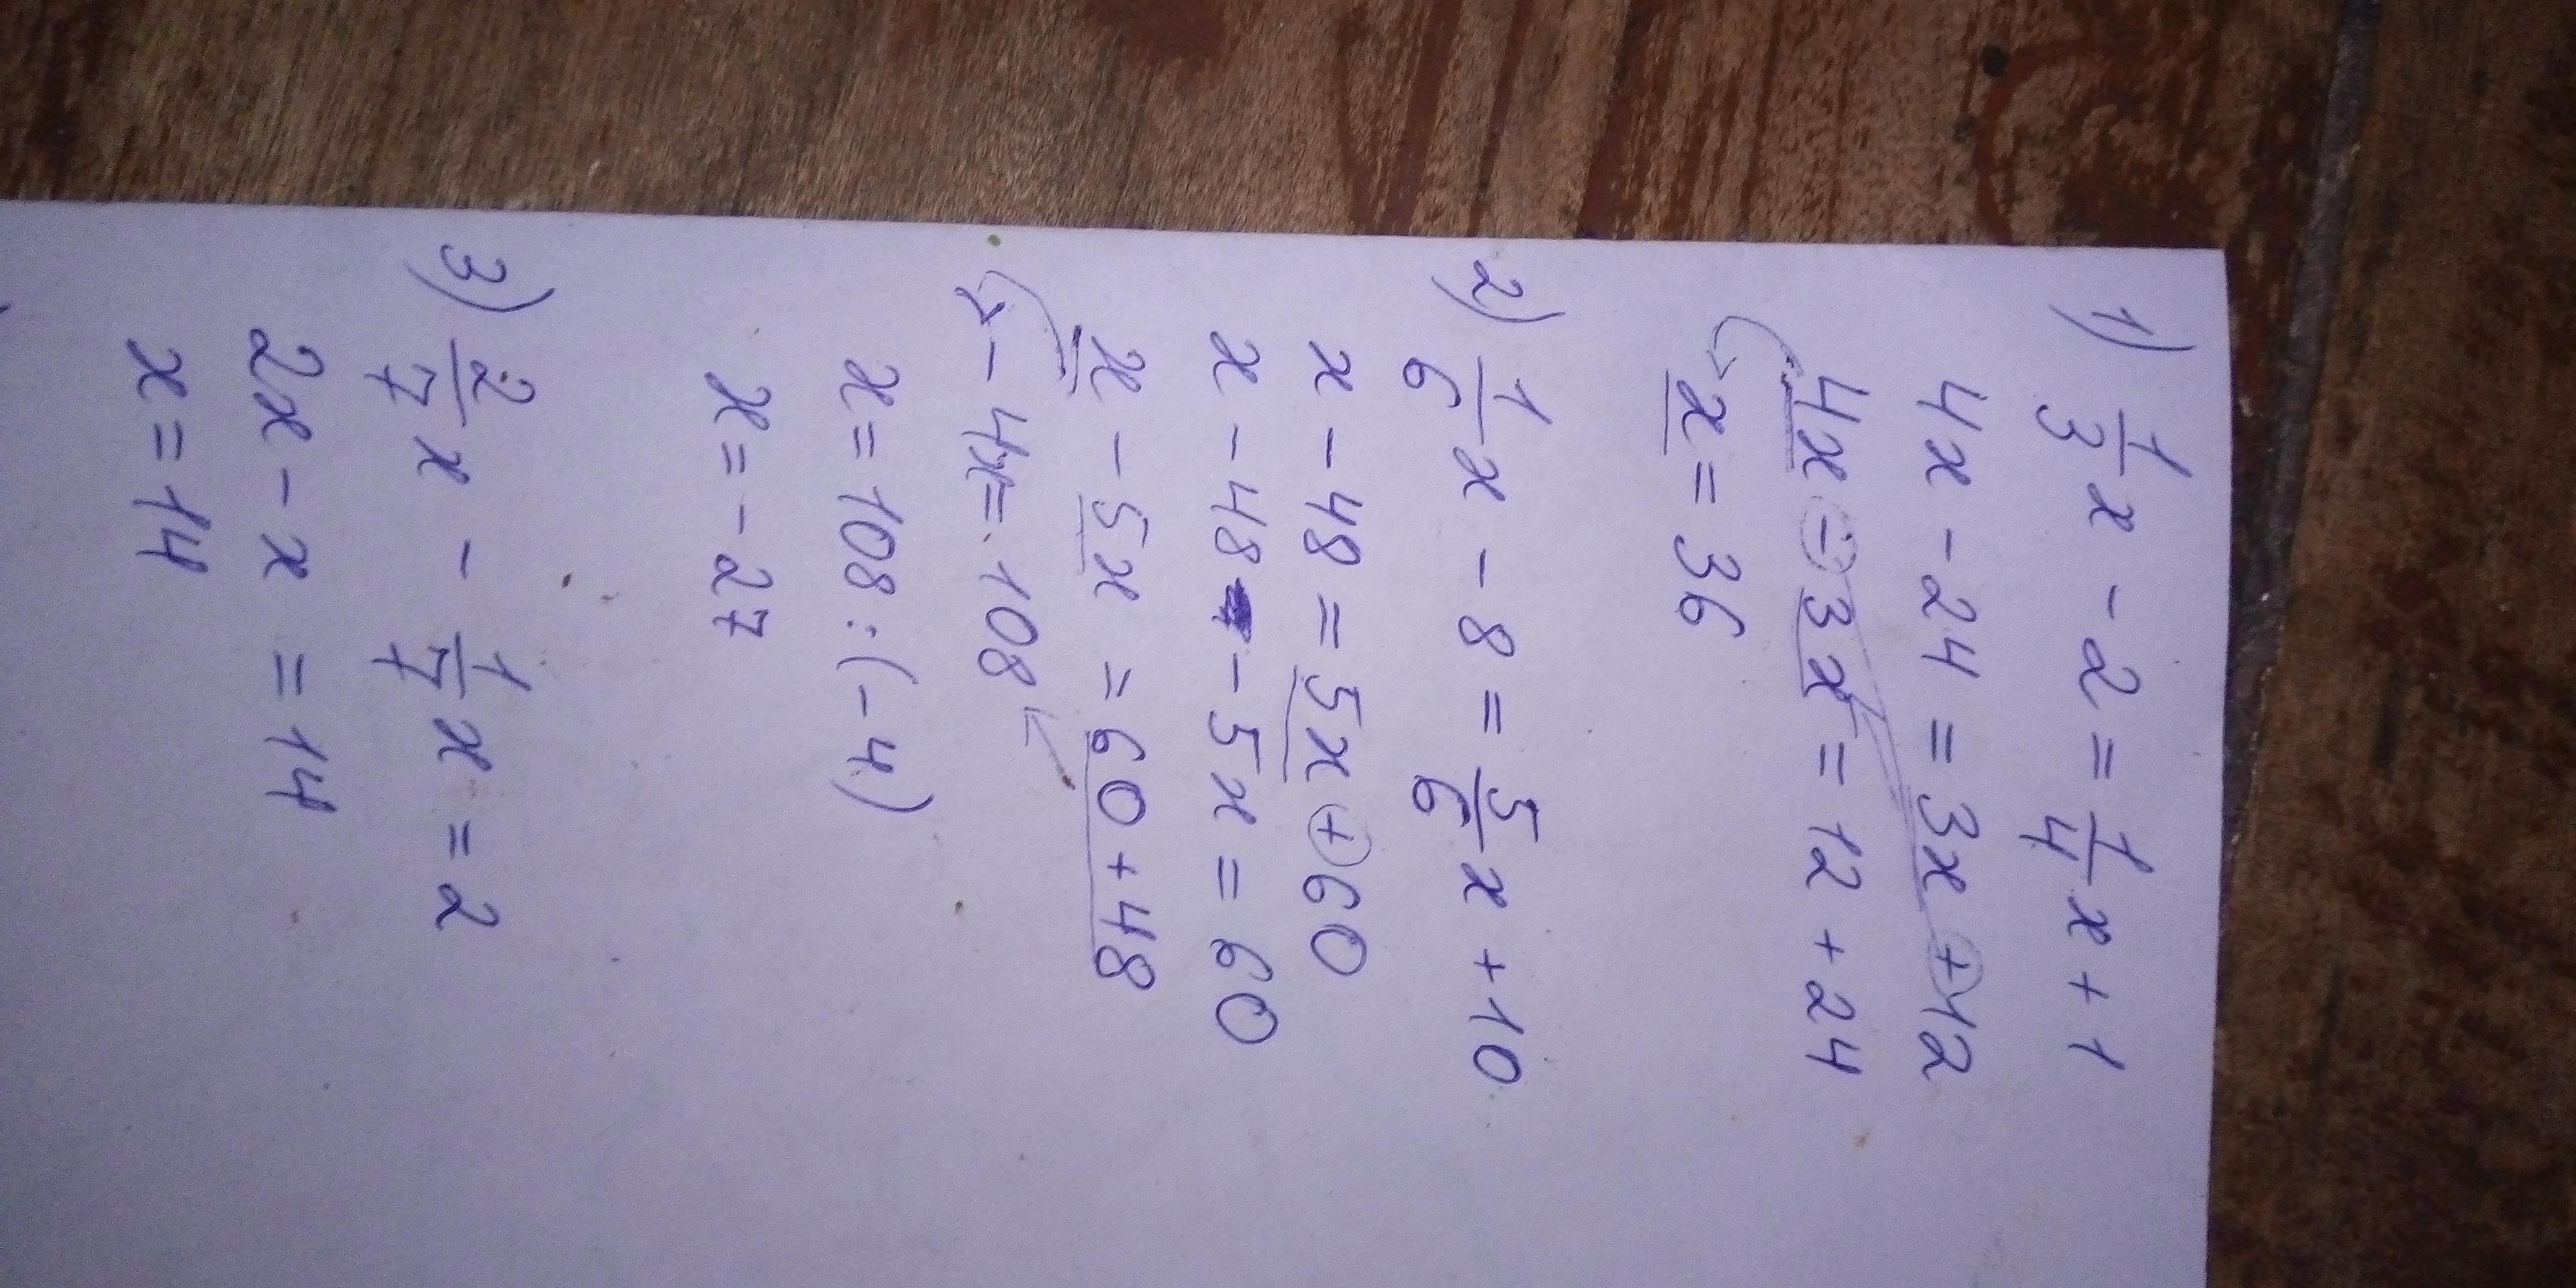 1) 1/3 x - 2 = 1/4 x + 1
4x - 24 = 3x + 12
4x - 3x = 12 + 24
x = 36
2) 1/6 x - 8 = 5/6 x + 10
x - 48 = 5x + 60
x - 48 - 5x = 60
x - 5x = 60 + 48
- 4x = 108
x = 108 : (-4)
x = - 27
3) 2/7 x - 1/7 x = 2
2x - x = 14
x = 14